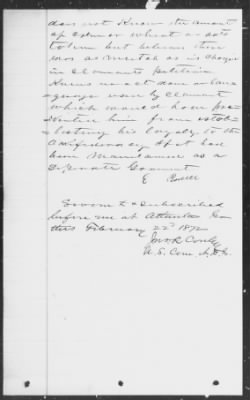 does not know the amount
of corn or wheat or oats
taken but believes there
was as much as is charged
in claimants petition
Knows no act done or lan
guage used by claimant
which would have pre
vented him from estab
lishing his loyalty to the
Confederacy if it had
been maintained as a
Separate Government
E Powell
Sworn to & subscribed
before me at Atlanta Ga
this February 22d 1872
U.S. Com N.D.G.